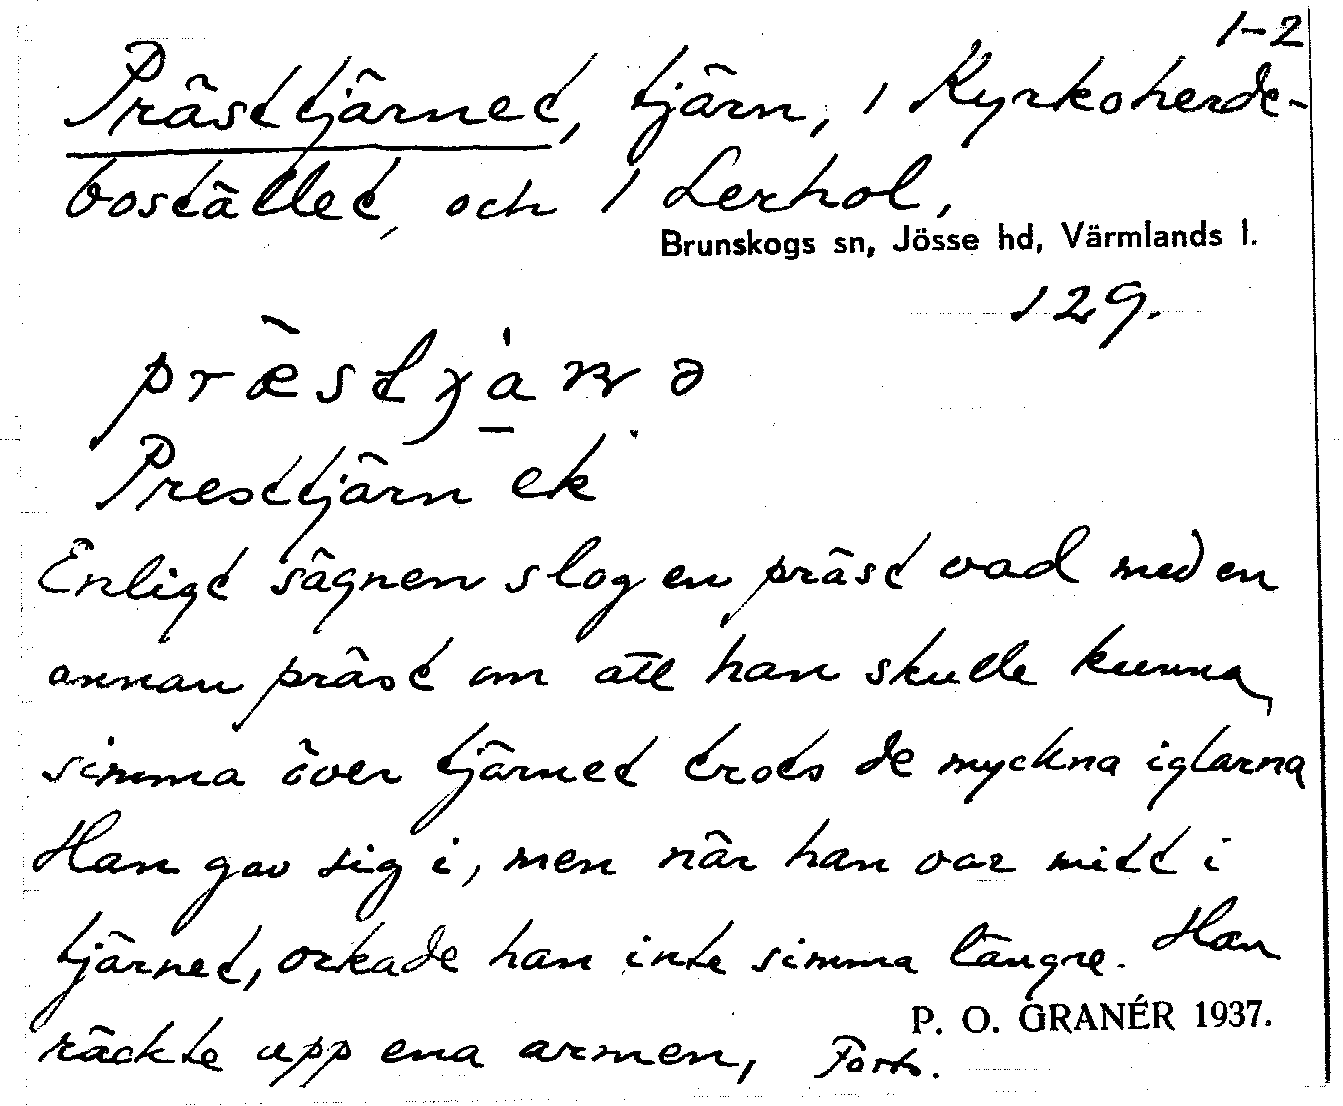 1-2
Prästtjärnet, tjärn, i Kyrkoherde-
bostället, och i Lerhol,
Brunskogs sn, Jösse hd, Värmlands l.
129.
Presttjärn ek
Enligt sägnen slog en präst vad med en
annan präst om att han skulle kunna
simma över tjärnet trots de myckna iglarna
Han gav sig i, men när han var mitt i
tjärnet, orkade han inte simma längre. Han
P. O. GRANÉR 1937.
räckte upp ena armen, Forts.